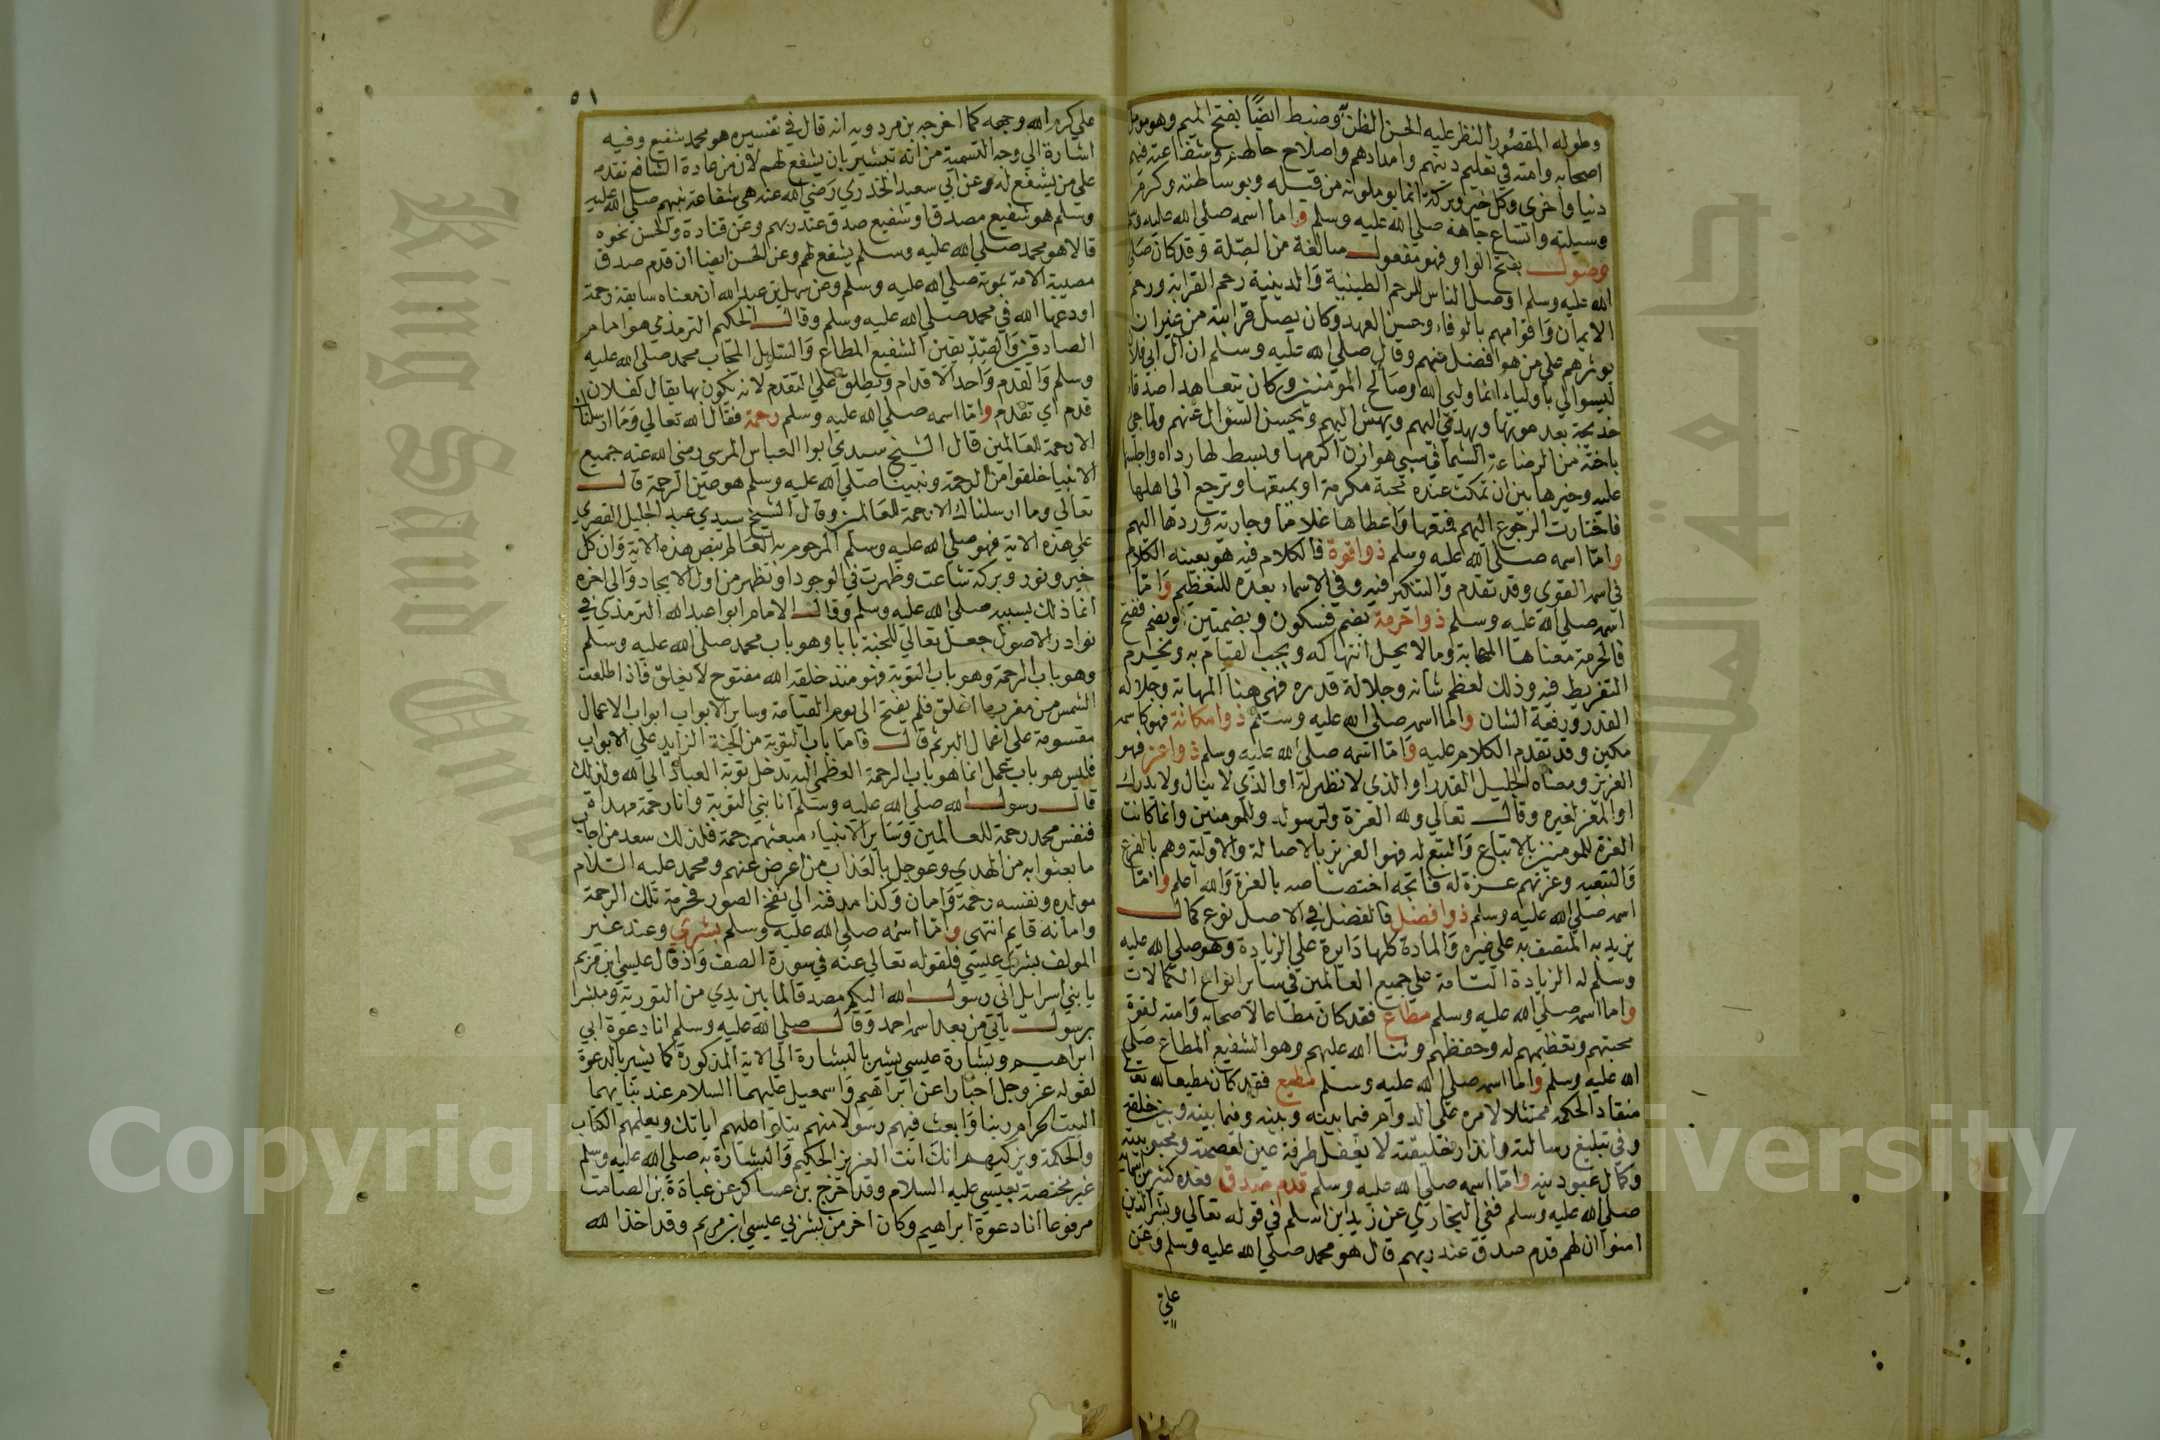 وطوله المقصور النظر عليه الحسن الظن وضبط ايضا بفتح الميم وهو
اصحابه وامته في تعليم دينهم وامدادهم واصلاح حالهم وشفاعته فيهم
دنيا واخرى وكل خير وبركة انما يوملونه من قبله وبوساطته وكرم
وسيلته واتساع جاهه صلى الله عليه وسلم واما اسمه صلى الله عليه
وصول بفتح الواو فهو مفعول مبالغة من الصلة وقد كان صلى
الله عليه وسلم اوصل الناس للرحم الطينية والدينية رحم القرابة ورحم
الايمان واقوامهم بالوفاء وحسن العهد وكان يصل قرابته من غير ان
يوثرهم على من هو افضل منهم وقال صلى الله عليه وسلم ان ال ابي فلان
ليسوا لي باولياء انما وليي الله وصالح المومنين وكان يتعاهد اصدقاء
خديجة بعد موتها ويهدي اليهم ويهش اليهم ويحسن السوال عنهم ولما جي
باخته من الرضاعة الشيما في سبي هوازن اكرمها وبسط لها رداه واجلسها
عليه وخيرها بين ان تمكث عنده محبة مكرمة او يمتعها وترجع الى اهلها
فاختارت الرجوع اليهم فمتعها واعطاها غلاما وجارية وردها اليهم
واما اسمه صلى الله عليه وسلم ذوا قوة فالكلام فيه هو بعينه الكلام
في اسمه القوي وقد تقدم والتنكير فيه وفي الاسماء بعده للتعظيم واما
اسمه صلى الله عليه وسلم ذوا حرمة بضم فسكون وبضمتين وبضم ففتح
فالحرمة معناها المهابة وما لا يحل انتهاكه ويجب القيام به ويحرم
التفريط فيه وذلك لعظم شانه وجلالة قدره فهي هنا المهابة وجلاله
القدر ورفعة الشان واما اسمه صلى الله عليه وسلم ذوا مكانة فهو كاسمه
مكين وقد تقدم الكلام عليه واما اسمه صلى الله عليه وسلم ذوا عز فهو
العزيز ومعناه الجليل القدر او الذي لا نظير له او الذي لا ينال ولا يدرك
او المعز لغيره وقال تعالى ولله العزة ولرسوله وللمومنين وانما كانت
العزة للمومنين بالاتباع والتبع له فهو العزيز بالاصالة والاولية وهم بالفرع
والتبعية وعزتهم عزة له فاتجه اختصاصه بالعزة والله اعلم واما
اسمه صلى الله عليه وسلم ذوا فضل فالفضل في الاصل نوع كمال
يزيد به المتصف به على غيره والمادة كلها دايرة على الزيادة وهو صلى الله عليه
وسلم له الزيادة التامة على جميع العالمين في ساير انواع الكمالات
واما اسمه صلى الله عليه وسلم مطاع فقد كان مطاعا لاصحابه وامته لقوة
محبتهم وتعظيمهم له وحفظهم وثنا الله عليهم وهو الشفيع المطاع صلى
الله عليه وسلم واما اسمه صلى الله عليه وسلم مطيع فقد كان مطيعا لله تعالى
منقاد الحكمه ممتثلا لامره على الدوام فيما بينه وبينه وفيما بينه وبين خلقه
وفي تبليغ رسالته وانذار خليقته لا يغفل طرفة عين لعصمته ومحبوبيته
وكمال عبوديته واما اسمه صلى الله عليه وسلم قدم صدق فعده كثير من اسمائه
صلى الله عليه وسلم ففي البخاري عن زيد ابن اسلم في قوله تعالى وبشر الذين
امنوا ان لهم قدم صدق عند ربهم قال هو محمد صلى الله عليه وسلم وعن
علي
٥١
علي كرم الله وجهه كما اخرجه بن مردويه انه قال في تفسيره هو محمد شفيع وفيه
اشارة الى وجه التسمية من انه تبشير بان يشفع لهم لان من عادة الشافع تقدم
على من يشفع له وعن ابي سعيد الخدري رضي الله عنه هي شفاعة نبيهم صلى الله عليه
وسلم هو شفيع مصدقا وشفيع صدق عند ربهم وعن قتادة والحسن نحوه
قالا هو محمد صلى الله عليه وسلم يشفع لهم وعن الحسن ايضا ان قدم صدق
مصيبة الامة بموته صلى الله عليه وسلم وعن سهل بن عبد الله ان معناه سابقة رحمة
اودعها الله في محمد صلى الله عليه وسلم وقال الحكيم الترمذي هو امام
الصادقين والصديقين الشفيع المطاع والسايل المجاب محمد صلى الله عليه
وسلم والقدم واحد الاقدام ويطلق على التقدم لانه يكون بها يقال لفلان
قدم اي تقدم واما اسمه صلى الله عليه وسلم رحمة فقال الله تعالى وما ارسلناك
الا رحمة للعالمين قال الشيخ سيدي ابوا العباس المرسي رضي الله عنه جميع
الانبيا خلقوا من الرحمة ونبينا صلى الله عليه وسلم هو عين الرحمة قال
تعالى وما ارسلناك الا رحمة للعالمين وقال الشيخ سيدي عبد الجليل القصري
على هذه الاية فهو صلى الله عليه وسلم المرحوم به العالم بنص هذه الاية وان كل
خير ونور وبركة شاعت وظهرت في الوجود او تظهر من اول الايجاد والى اخره
انما ذلك بسببه صلى الله عليه وسلم وقال الامام ابوا عبد الله الترمذي في
نوادر الاصول جعل تعالى للجنة بابا وهو باب محمد صلى الله عليه وسلم
وهو باب الرحمة وهو باب التوبة فهو منذ خلقه الله مفتوح لا يغلق فاذا طلعت
الشمس من مغربها اغلق فلم يفتح الى يوم القيامة وساير الابواب ابواب الاعمال
مقسومة على اعمال البر ثم قال فاما باب التوبة من الجنة الزايد على الابواب
فليس هو باب عمل انما هو باب الرحمة العظمى اليه تدخل توبة العباد الى الله ولذلك
قال رسول الله صلى الله عليه وسلم انا نبي التوبة وانا رحمة مهداة
فنفس محمد رحمة للعالمين وساير الانبياء مبعثهم رحمة فلذلك سعد من اجاب
ما بعثوا به من الهدي وعوجل بالعذاب من اعرض عنهم ومحمد عليه السلام
مولده ونفسه رحمة وامان وكذا مدفنه الى نفخ الصور فحرمة تلك الرحمة
وامانه قايم انتهى واما اسمه صلى الله عليه وسلم بشرى وعند غير
المولف بشرى عيسى فلقوله تعالى عنه في سورة الصف واذ قال عيسى ابن مريم
يا بني اسرايل اني رسول الله اليكم مصدقا لما بين يدي من التورية ومبشرا
برسول ياتي من بعد اسمه احمد وقال صلى الله عليه وسلم انا دعوة ابي
ابراهيم وبشارة عيسى يشير بالبشارة الى الاية المذكورة كما يشير بالدعوة
لقوله عز وجل اخبارا عن ابراهيم واسمعيل عليهما السلام عند بنايهما
البيت الحرام ربنا وابعث فيهم رسولا منهم يتلوا عليهم اياتك ويعلمهم الكتاب
والحكمة ويزكيهم انك انت العزيز الحكيم والبشارة به صلى الله عليه وسلم
غير مختصة بعيسى عليه السلام وقد اخرج بن عساكر عن عبادة بن الصامت
مرفوعا انا دعوة ابراهيم وكان اخر من بشر بي عيسى ابن مريم وقد اخذ الله
جامعة الملك سعود
King Saud University
Copyright © King Saud University